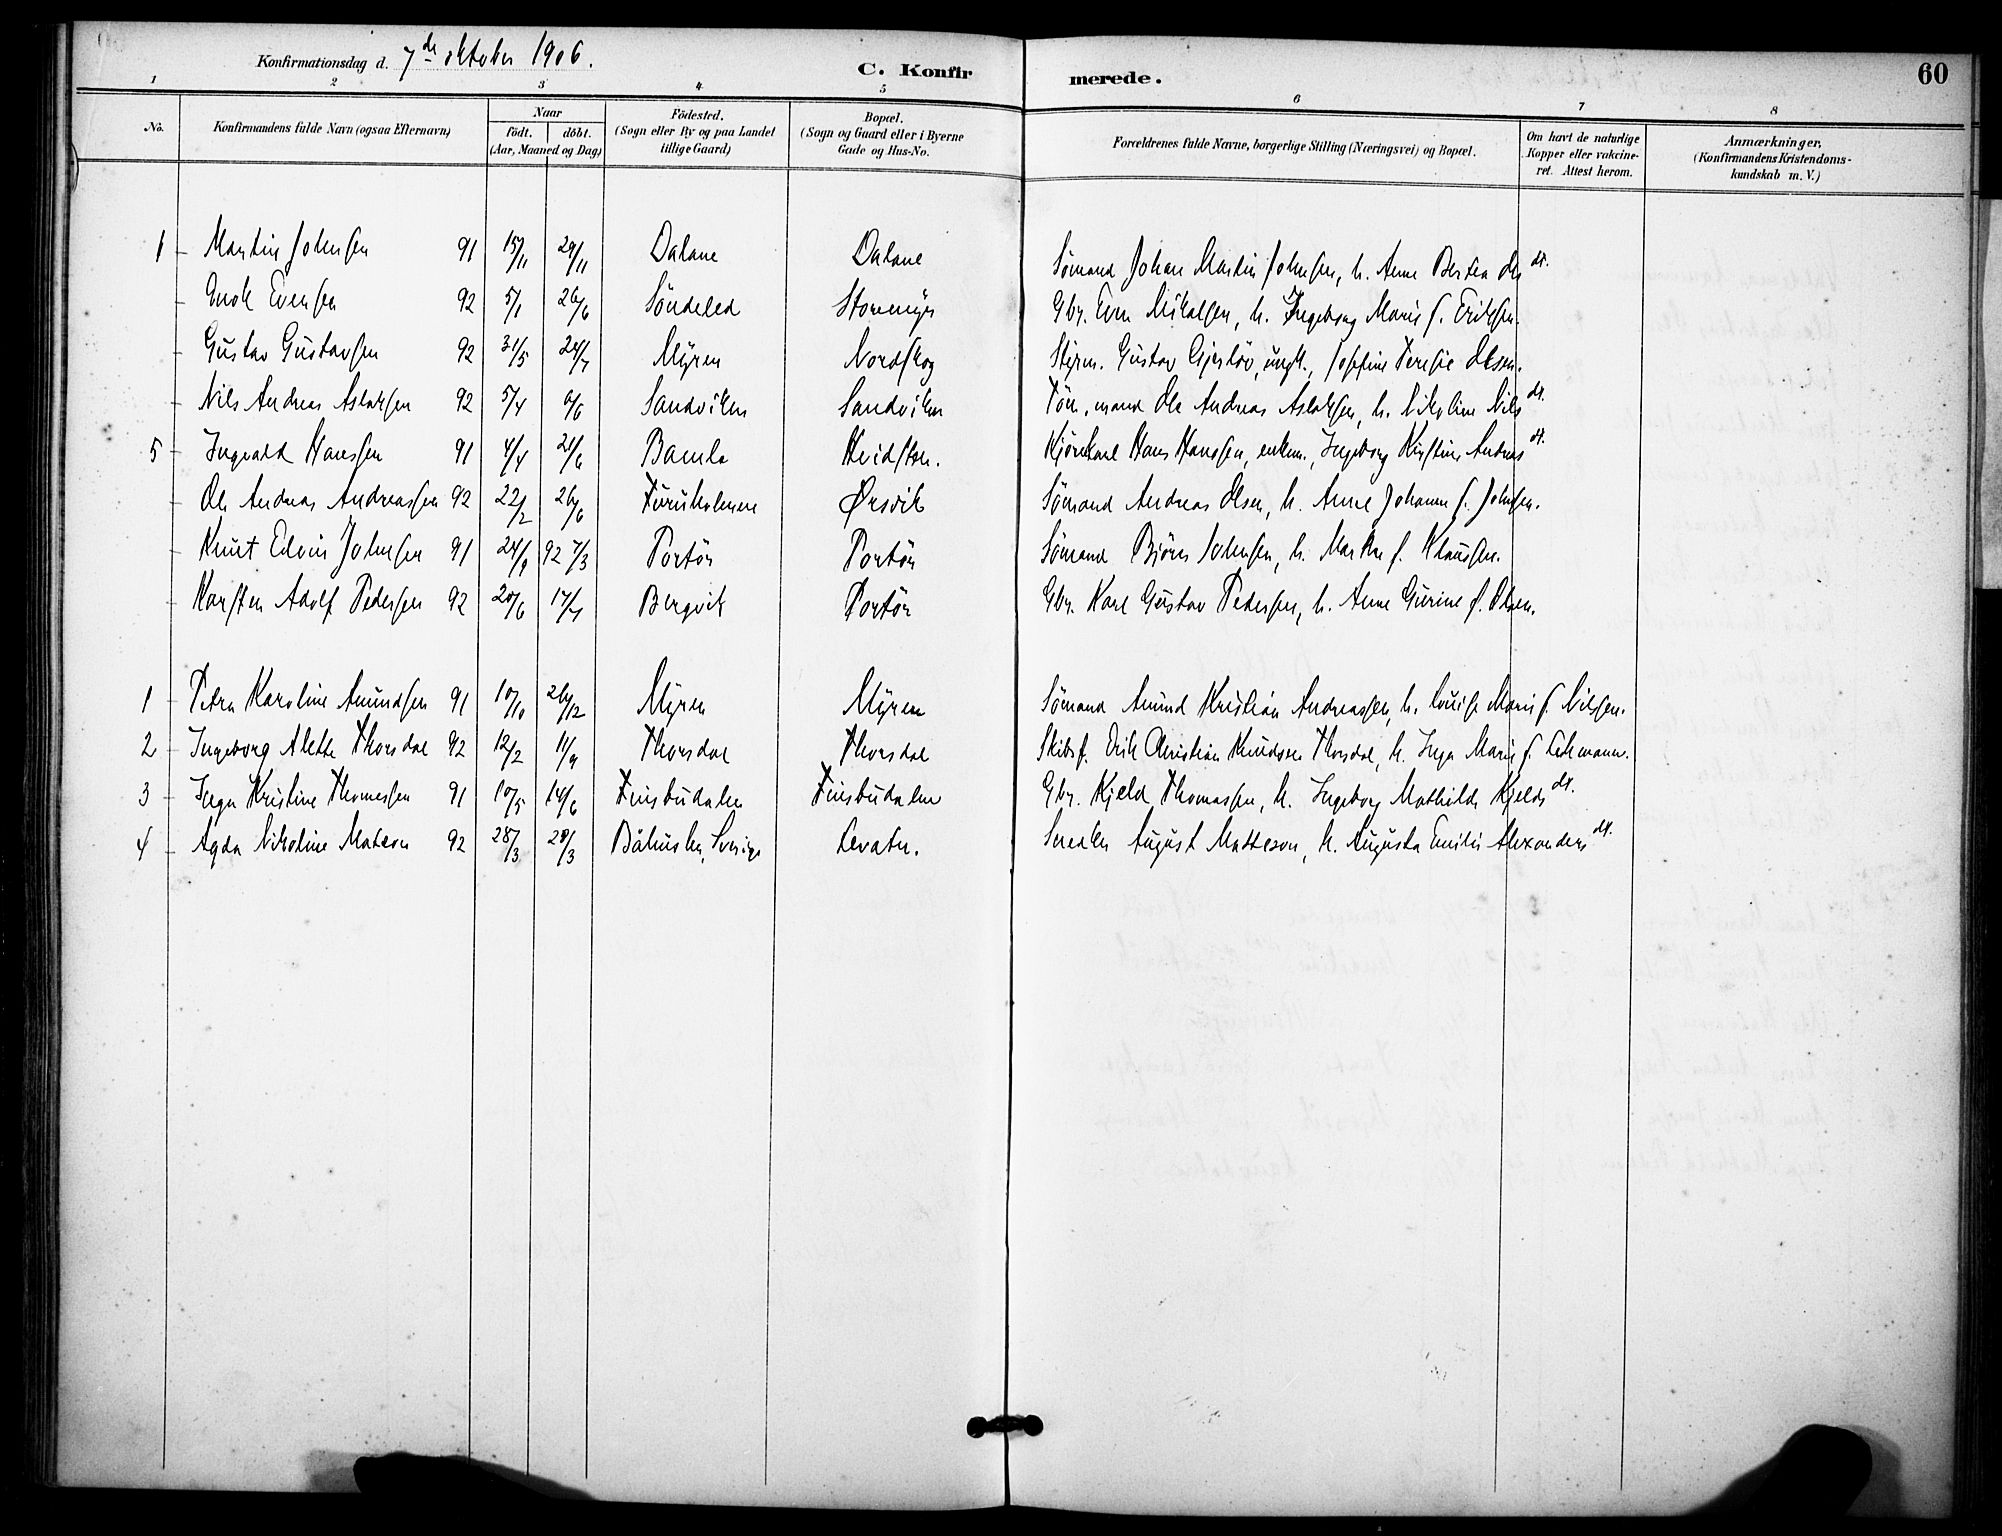 Konfirmationsdag d. 7de oktober 1906.
C. Konfirmerede.
60
1 2 3 4 5 6 7 8
No. Konfirmandens fulde Navn (ogsaa Efternavn) Naar født. døbt. (Aar, Maaned og Dag) Fødested. (Sogn eller By og paa Landet tillige Gaard) Bopæl. (Sogn og Gaard eller i Byerne Gade og Hus-No. Forældrenes fulde Navne, borgerlige Stilling (Næringsvei) og Bopæl. Om havt de naturlige Kopper eller vakcineret. Attest herom. Anmærkninger, (Konfirmandens Kristendomskundskab m. V.)
1 - Martin Johnsen 91 15/11 29/11 Dalane Dalane Sömand Johan Martin Johnsen, h. Anne Bertea Olsdt.
- Enok Evensen 92 5/1 26/6 Söndeled Stormyr Gbr. Even Mikalsen, h. Ingeborg Marie f. Eriksen.
- Gustav Gustavsen 92 31/5 24/7 Myren Nordskog Styrm. Gustav Gjerlöv, ungk., Josefine Teresie Olsen.
- Nils Andreas Aslaksen 92 5/4 6/6 Sandviken Sandviken Töm.mand Ole Andreas Aslaksen, h. Nikoline Nilsdt.
5 - Ingvald Hansen 91 4/4 21/6 Bamle Hvidsten. Kjörekarl Hans Hansen, enkem., Ingeborg Kirstine Andreasdt.
- Ole Andreas Andreassen 92 22/2 26/6 Furuholmen Ørsvik Sömand Andreas Olsen, h. Anne Johanne f. Johnsen.
- Knut Edvin Johnsen 91 24/9 92 7/3 Portör Portör Sömand Björn Johnsen, h. Marthe f. Klausen.
- Karsten Adolf Pedersen 92 20/6 17/7 Bergvik Portör Gbr. Karl Gustav Pedersen, h. Anne Gurine f. Olsen.
1 - Petra Karoline Amundsen 91 10/10 26/12 Myren Myren Sömand Amund Kristian Andreassen, h. Louise Marie f. Nilsen.
2 - Ingeborg Alette Thorsdal 92 12/2 11/9 Thorsdal Thorsdal Skibsf. Erik Christian Knudsen Thorsdal, h. Inga Marie f. Lehmann.
3 - Inga Kristine Thomassen 91 10/5 14/6 Finsbudalen Finsbudalen Gbr. Kjeld Thomassen, h. Ingeborg Mathilde Kjeldsdt.
4 - Agda Nikoline Mateson 92 28/3 29/3 Båhuslen, Sverige Levatn. Snedker August Matteson, h. Augusta Emilie Alexandersdt.